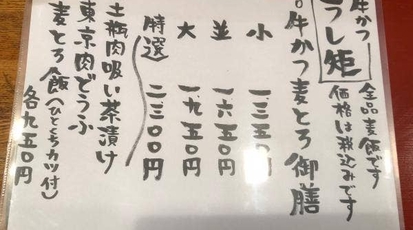 牛かつ
うし矩
全品麦飯です
価格は税込みです
牛かつ麦とろ御膳
小 一、三五〇円
並 一、六五〇円
大 一、九五〇円
特選 二、三〇〇円
土瓶肉吸い茶漬け
東京肉どうふ
麦とろ飯(ひとくちカツ付)
各九五〇円